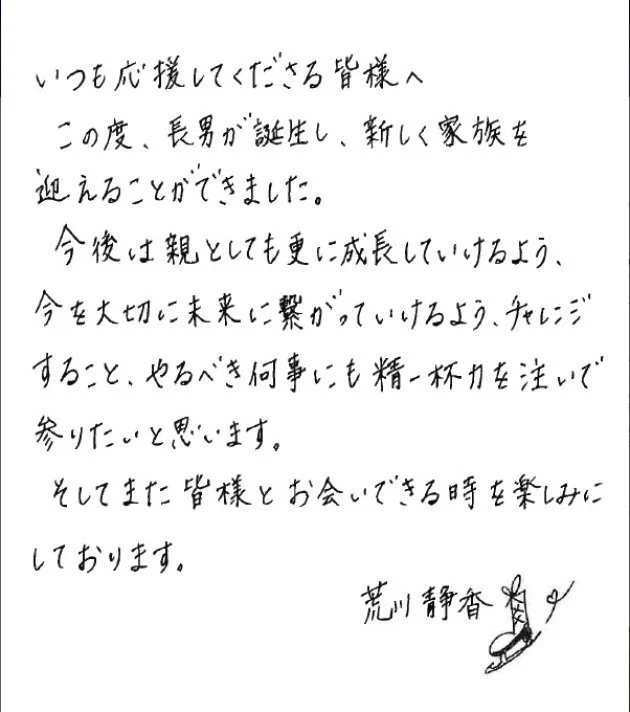 いつも応援してくださる皆様へ
この度、長男が誕生し、新しく家族を
迎えることができました。
今後は親としても更に成長していけるよう、
今を大切に未来に繋がっていけるよう、チャレンジ
すること、やるべき何事にも精一杯力を注いで
参りたいと思います。
そしてまた皆様とお会いできる時を楽しみに
しております。
荒川静香